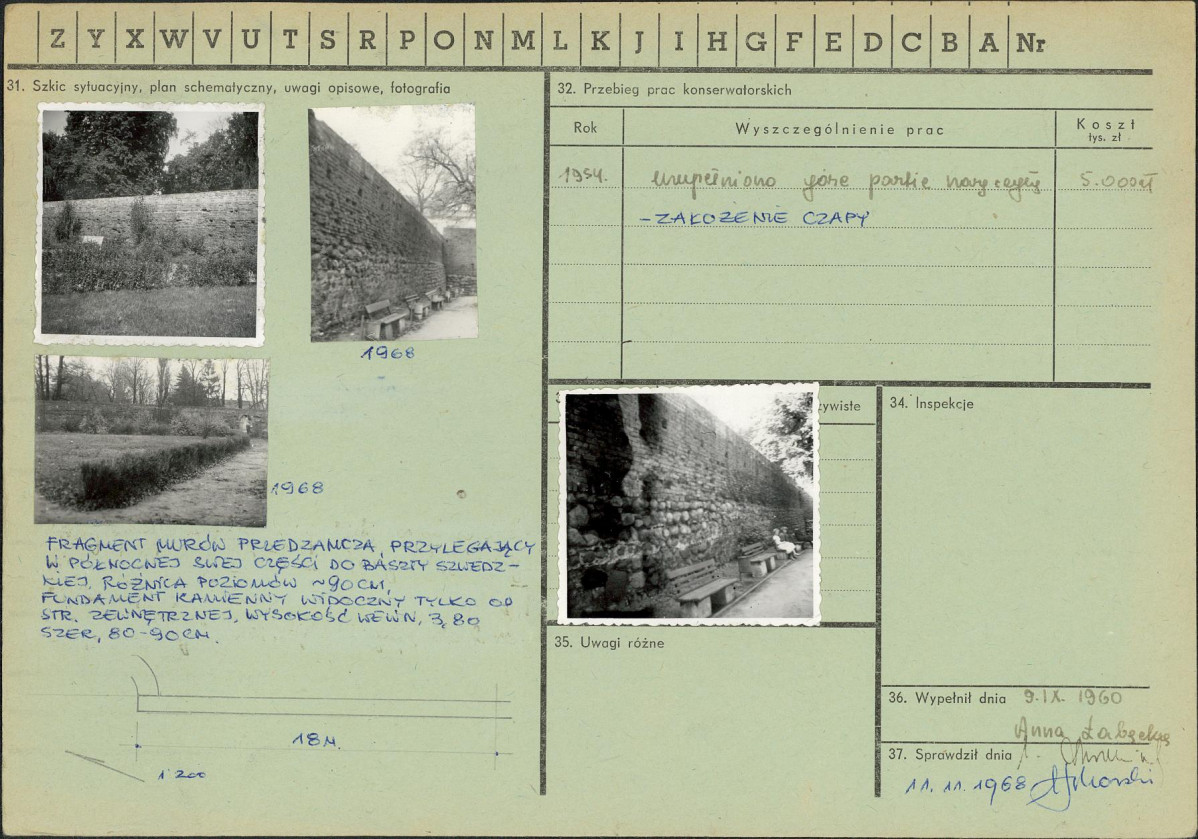 Z Y X W V U T S R P O N M L K J I H G F E D C B A Nr
31. Szkic sytuacyjny, plan schematyczny, uwagi opisowe, fotografia
1968
1968
FRAGMENT MURÓW PRZEDZAMCZA, PRZYLEGAJĄCY
W PÓŁNOCNEJ SWEJ CZĘŚCI DO BASZTY SZWEDZ-
KIEJ, RÓŻNICA POZIOMÓW ~90CM,
FUNDAMENT KAMIENNY WIDOCZNY TYLKO OD
STR. ZEWNĘTRZNEJ, WYSOKOŚĆ WEWN, 3,80
SZER, 80-90CM.
18M.
1:200
32. Przebieg prac konserwatorskich
Rok
Wyszczególnienie prac
Koszt
tys. zł
1954.
uzupełniono górne partie
5.000zł
-ZAŁOŻENIE CZAPY
zywiste
34. Inspekcje
35. Uwagi różne
36. Wypełnił dnia 9.IX.1960
Anna
37. Sprawdził dnia
11.11.1968